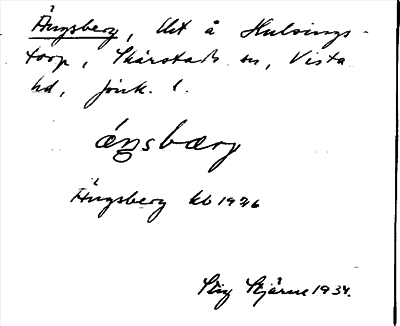 Ängsberg, lht å Hulsings-
torp, Skärstads sn, Vista
hd, Jönk. l.
áŋsbærg
Ängsberg kb 1926
Stig Skjärne 1934.